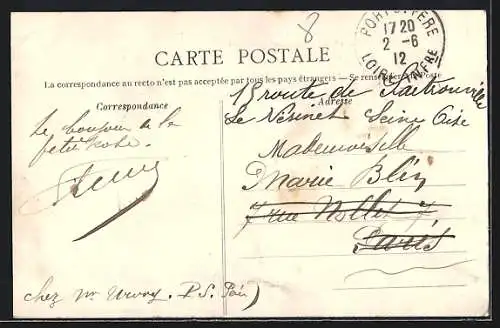 8
PORT S. PERE
17 20
2 - 6
12
LOIRE INFRE
CARTE POSTALE
La correspondance au recto n'est pas acceptée par tous les pays étrangers — Se renseigner à la Poste
Correspondance
Adresse
18 route de Sartrouville
Le Vésinet Seine Oise
Mademoiselle
Marie Blin
7 rue Nollet 7
Paris
Le bonjour de la
petite
chez Mr P. S. Père